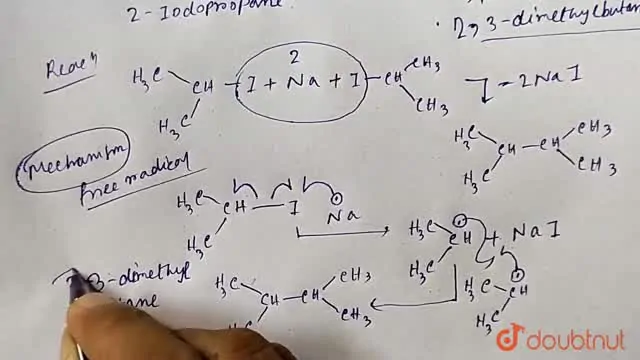 2-Iodopropane
2,3-dimethylbutan
2
H3C CH – I + Na + I – CH CH3
H3C CH3
- 2NaI
H3C CH – CH CH3
H3C CH3
Mechanism
free radical
H3C CH – I Na
H3C
H3C CH + NaI
H3C CH
H3C
3-dimethyl
ane
H3C CH – CH CH3
H3C CH3
doubtnut